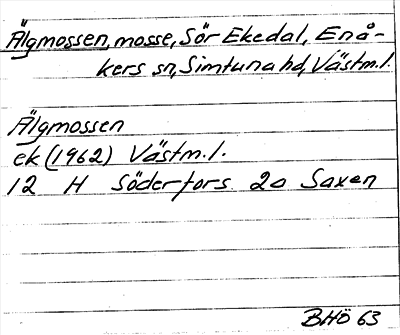 Älgmossen, mosse, Sör Ekedal, Enå-
kers sn, Simtuna hd, Västm.l.
Älgmossen
ek (1962) Västm.l.
12 H Söderfors 20 Saxen
BHÖ 63